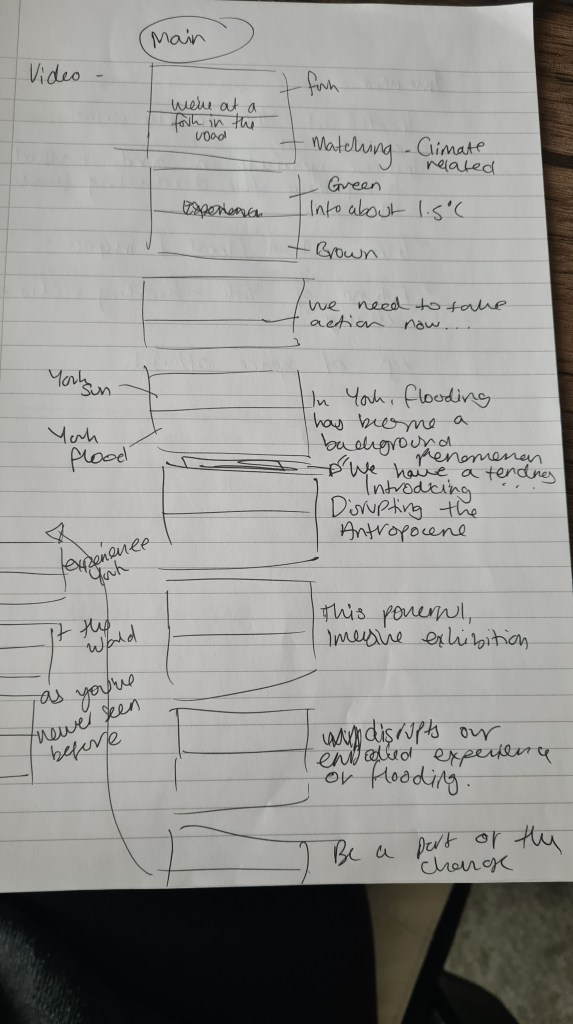 Main
Video -
We're at a
fork in the
road
fork
Matching - Climate
related
Green
Info about 1.5°C
Brown
We need to take
action now...
York
Sun
York
flood
In York, flooding
has become a
background
Phenomenon
"We have a
Introducing ...
Disrupting the
Antropocene
experience
York
+ the
world
as you've
never seen
before
This powerful,
exhibition
disrupts our
embodied experience
of flooding.
Be a part of the
change